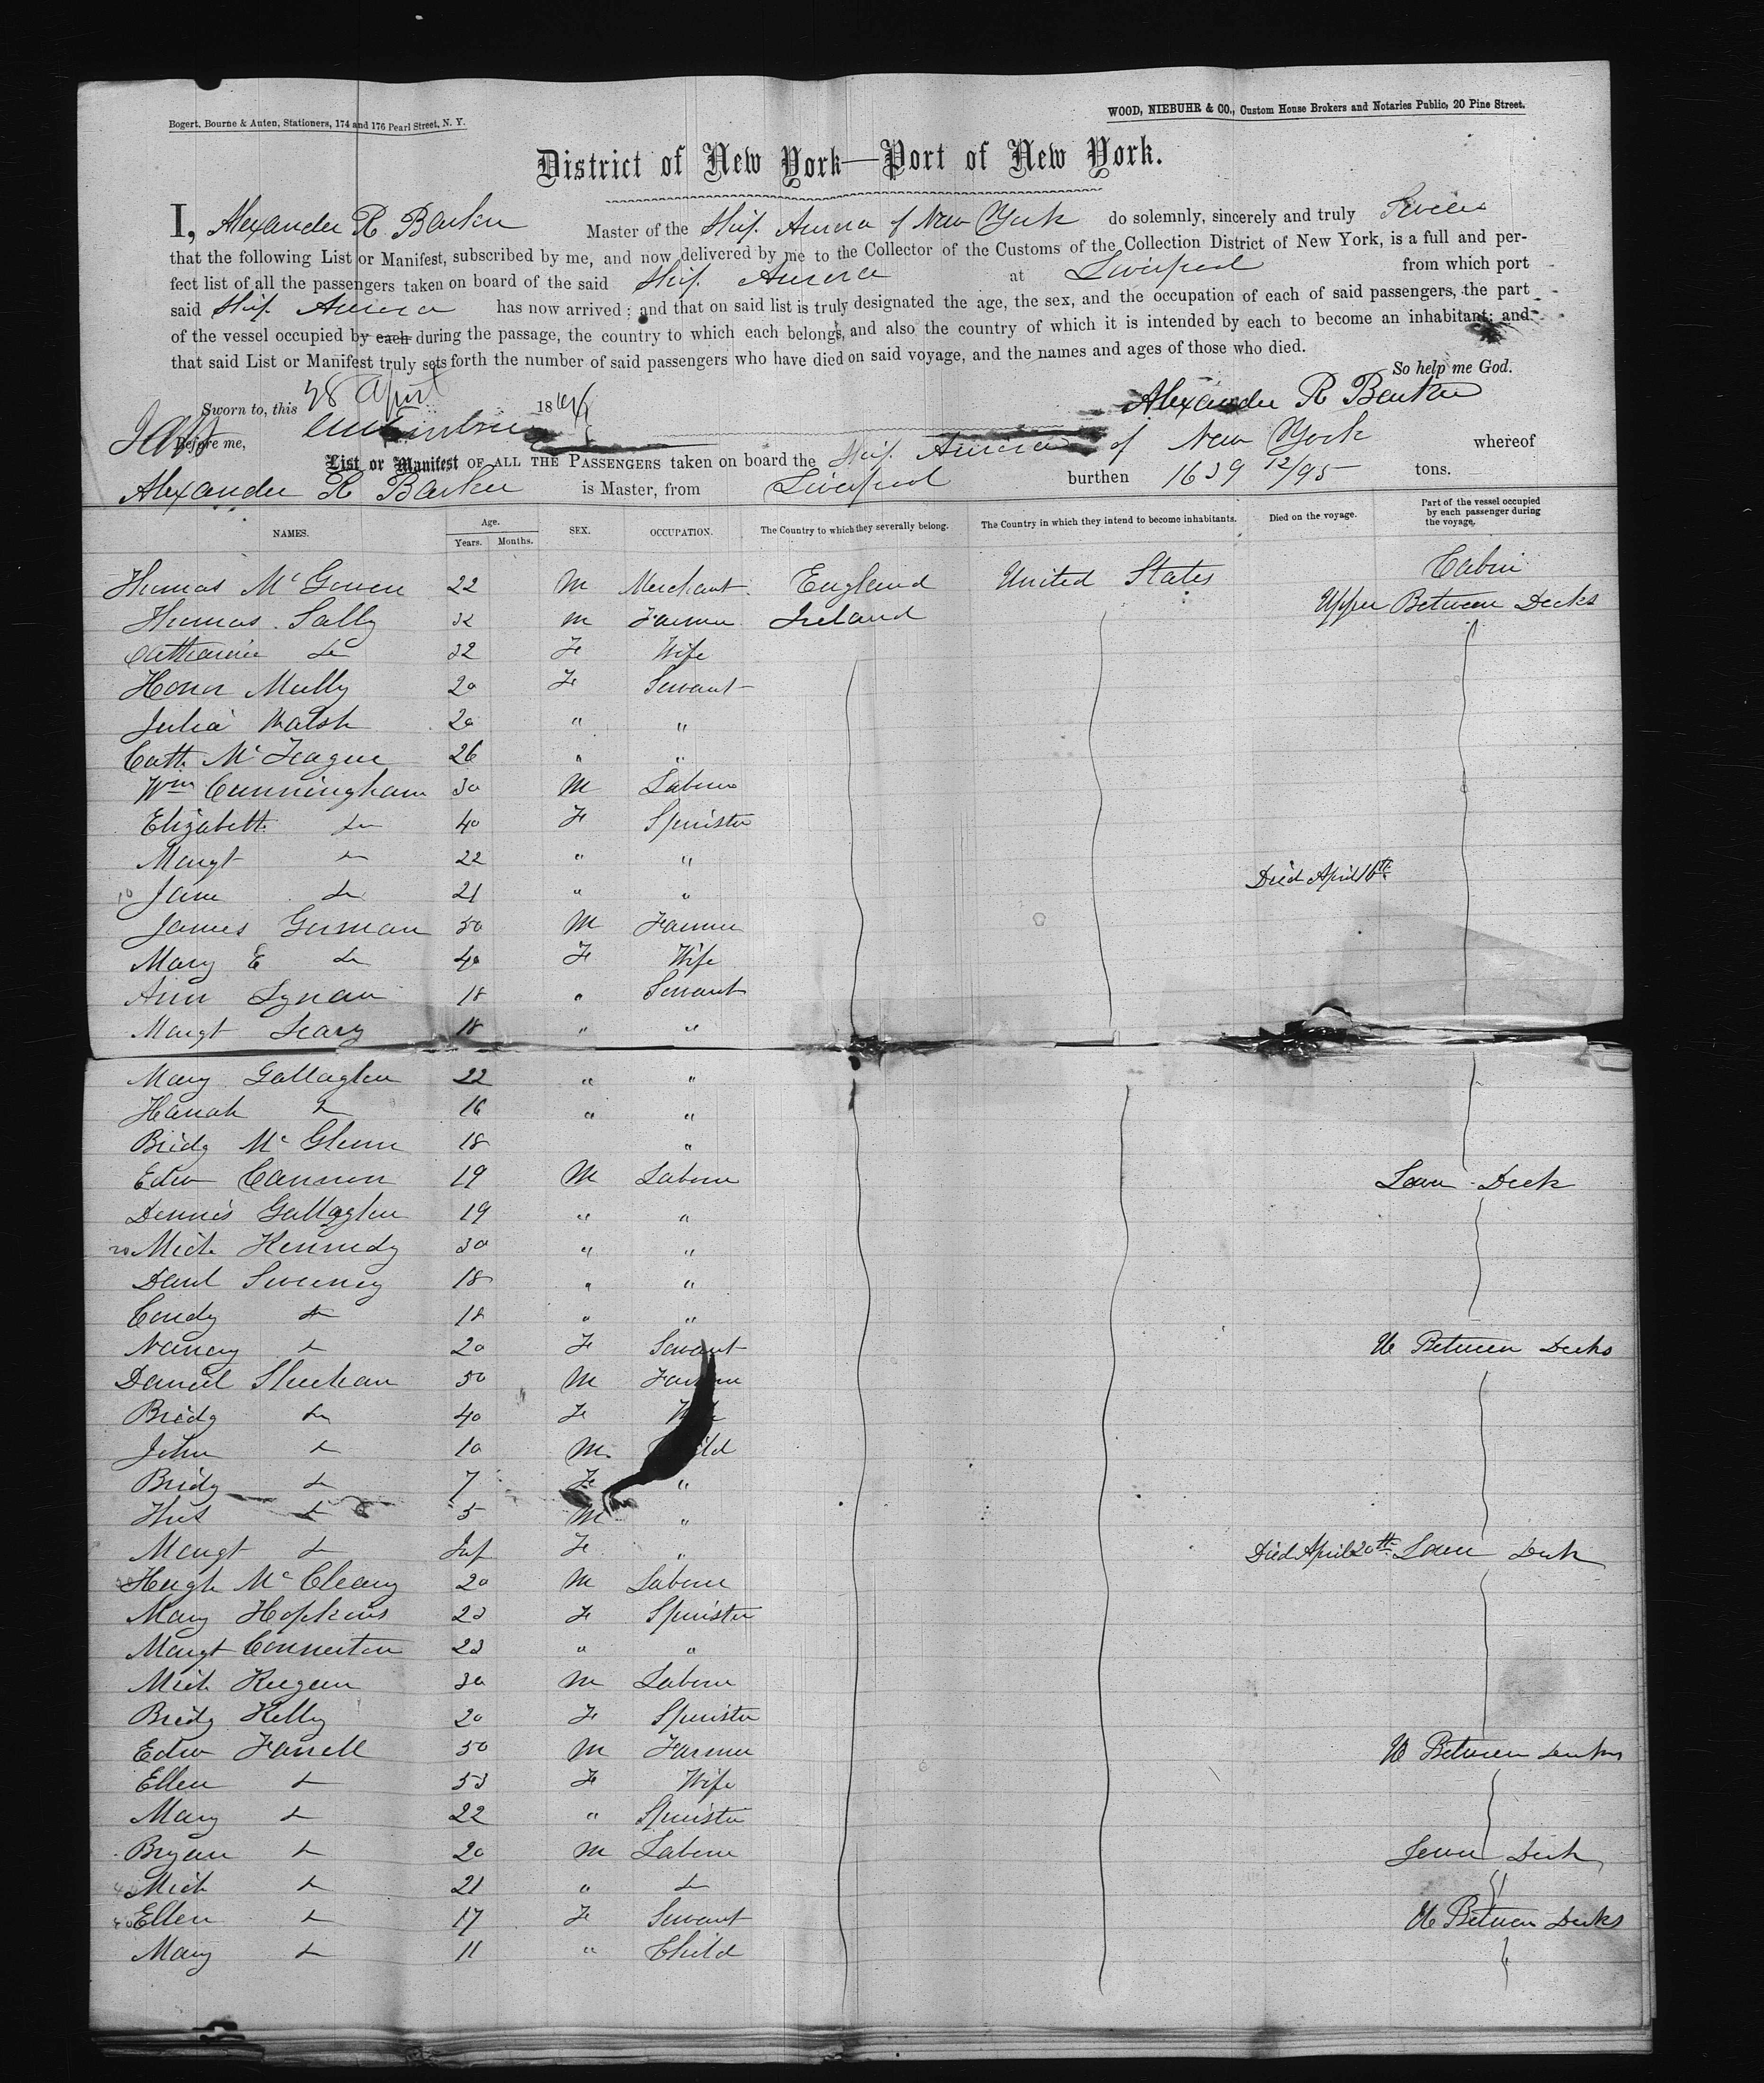 Bogert, Bourne & Auten, Stationers, 174 and 176 Pearl Street, N. Y.
WOOD, NIEBUHR & CO., Custom House Brokers and Notaries Public, 20 Pine Street.
District of New York—Port of New York.
I, Alexander R Barker Master of the Ship Aurora of New York do solemnly, sincerely and truly
that the following List or Manifest, subscribed by me, and now delivered by me to the Collector of the Customs of the Collection District of New York, is a full and per-
fect list of all the passengers taken on board of the said Ship Aurora at Liverpool from which port
said Ship Aurora has now arrived; and that on said list is truly designated the age, the sex, and the occupation of each of said passengers, the part
of the vessel occupied by each during the passage, the country to which each belongs, and also the country of which it is intended by each to become an inhabitant; and
that said List or Manifest truly sets forth the number of said passengers who have died on said voyage, and the names and ages of those who died.
So help me God.
Sworn to, this 28 April 186 Alexander R Barker
Before me,
List or Manifest OF ALL THE PASSENGERS taken on board the Ship Aurora of New York whereof
Alexander R Barker is Master, from Liverpool burthen 1639 12/95 tons.
NAMES. Age. Years. Months. SEX. OCCUPATION. The Country to which they severally belong. The Country in which they intend to become inhabitants. Died on the voyage. Part of the vessel occupied by each passenger during the voyage.
Thomas Mc Gowen 22 M Merchant England United States Cabin
Thomas Sally 32 M Farmer Ireland Upper Between Decks
Catharine Do 32 F Wife
Honor Mully 20 F Servant
Julia Walsh 20 " "
Cath Mc Teague 26 " "
Wm Cunningham 30 M Labour
Elizabeth Do 40 F Spinster
Margt Do 22 " "
10 Jane Do 21 " " Died April 16th
James Gorman 50 M Farmer
Mary E Do 40 F Wife
Ann Lynan 18 " Servant
Margt Leary 18 " "
Mary Gallagher 22 " "
Hanah Do 16 " "
Bridg Mc Glenn 18 "
Edw Cannon 19 M Labour Lower Deck
Dennis Gallagher 19 " "
20 Mich Kennedy 30 " "
Danl Sweeney 18 " "
Condy Do 18 " "
Nancy Do 20 F Servant U Between Decks
Daniel Sheehan 50 M Farmer
Bridg Do 40 F Wife
John Do 10 M Child
Bridg Do 7 F "
Do 5 M "
Margt Do Inf F " Died April 20th Lower Deck
Hugh Mc Cleary 20 M Labour
Mary Hopkins 23 F Spinster
Margt Connerton 23 " "
Mich Keegan 30 M Labour
Bridg Kelly 20 F Spinster
Edw Farrell 50 M Farmer U Between Decks
Ellen Do 53 F Wife
Mary Do 22 " Spinster
Bryan Do 20 M Labour Lower Deck
Mich Do 21 " Do
40 Ellen Do 17 F Servant U Between Decks
Mary Do 11 " Child